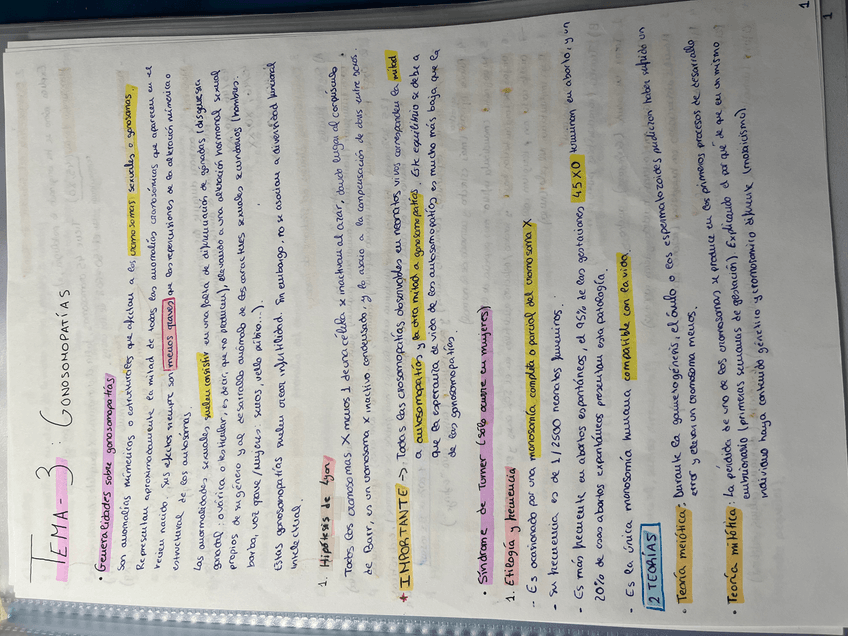 TEMA-3: GONOSOMOPATÍAS
• Generalidades sobre gonosomopatías
Son anomalías númericas o estructurales que afectan a los cromosomas sexuales o gonosomas.
Representan aproximadamente la mitad de todas las anomalías cromosómicas que aparecen en el
recien nacido. Sus efectos siempre son menos graves que las repercusiones de la alteración númerica o
estructural de los autosomas.
Las anormalidades sexuales suelen consistir en una falta de diferenciación de gónadas (disgenesia
gonadal: ovárica o testicular, es decir, que no producen), llevando a una alteración hormonal sexual
propios de su género y al desarrollo anómalo de los caracteres sexuales secundarios (hombres:
barba, voz grave / mujeres: senos, velloактив...).
Estas gonosomopatías suelen crear infertilidad. Sin embargo, no se asocian a diversidad funcional
intelectual.
1. Hipótesis de Lyon
Todos los cromosomas X menos 1 de una célula se inactivan al azar, dando lugar al corpúsculo
de Barr, es un cromosoma X inactivo condensado y lo asocio a la compensación de dosis entre sexos.
* IMPORTANTE -> Todas las cromosopatías observables en neonatos vivos corresponden la mitad
a autosomopatías y la otra mitad a gonosomopatías. Este equilibrio se debe a
que la esperanza de vida de las autosomopatías es mucho más baja que la
de las gonosomopatías.
• Síndrome de Turner (sólo ocurre en mujeres)
1. Etilogía y frecuencia
- Es ocasionado por una monosomía completa o parcial del cromosoma X
- Su frecuencia es de 1/2500 neonatos femeninos.
- Es más frecuente en abortos espontáneos, el 95% de las gestaciones 45X0 terminan en aborto, y un
20% de esos abortos espontáneos presentan esta patología.
- Es la única monosomía humana compatible con la vida.
2 TEORÍAS
• Teoría meiótica: Durante la gametogénesis, el óvulo o los espermatozoides pudieron haber sufrido un
error y llevar un cromosoma menos.
• Teoría mitótica: La pérdida de uno de los cromosomas se produce en los primeros procesos de desarrollo
embrionario (primeras semanas de gestación). Explicando el por qué de que en un mismo
individuo haya contenido génético y cromosomico diferente (mosaicismo)
1
1